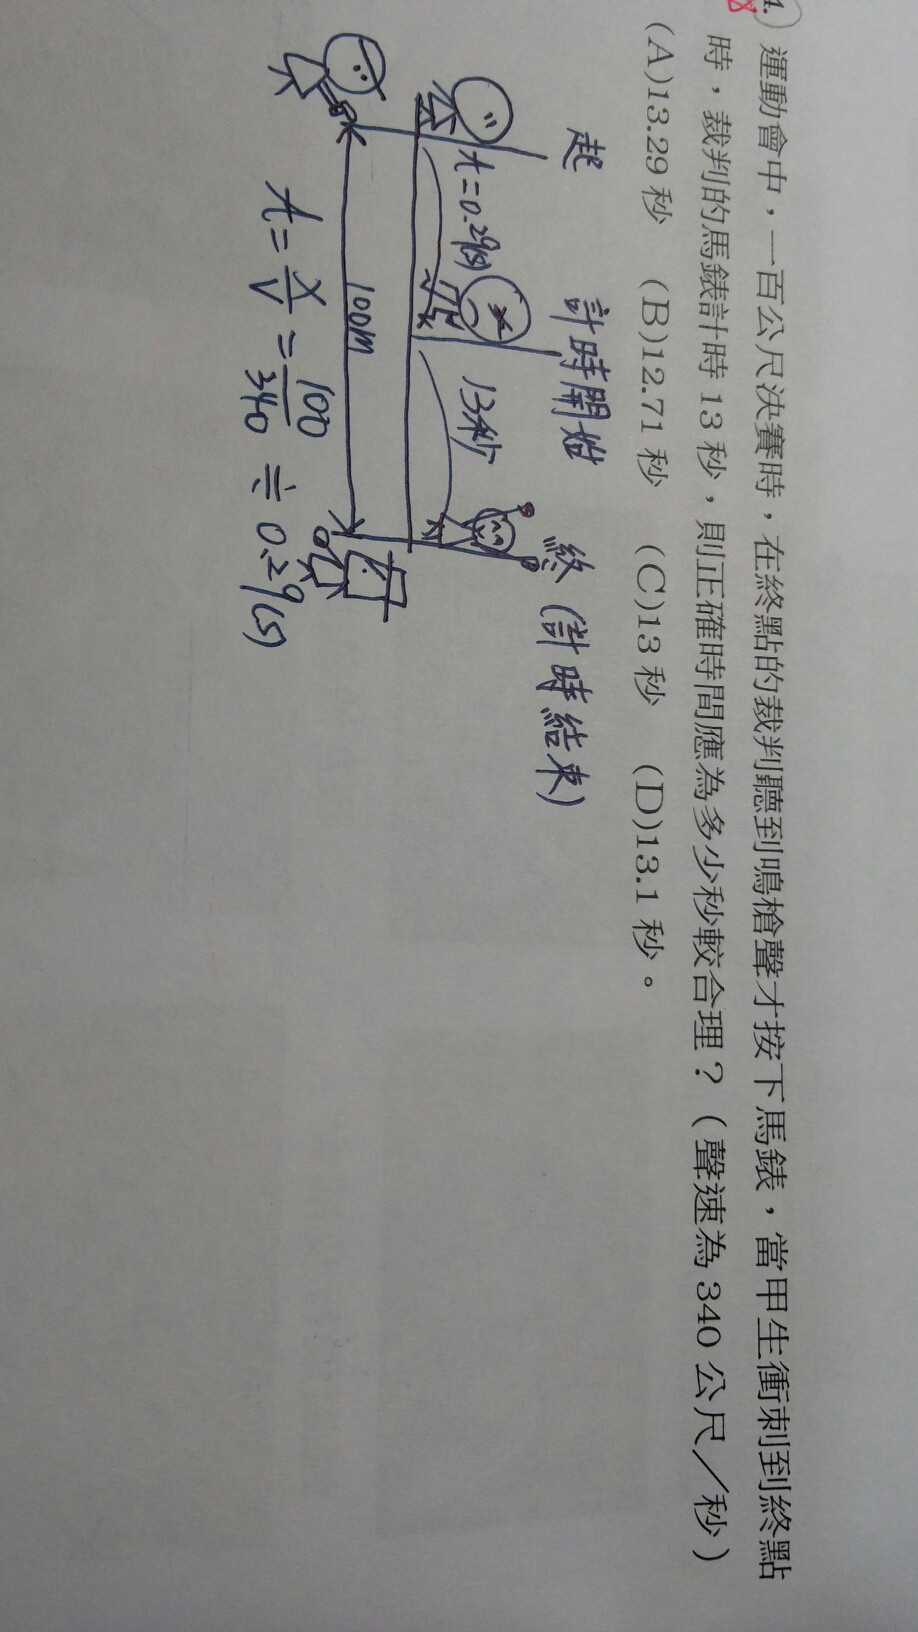 4. 運動會中，一百公尺決賽時，在終點的裁判聽到鳴槍聲才按下馬錶，當甲生衝刺到終點
時，裁判的馬錶計時 13 秒，則正確時間應為多少秒較合理？（聲速為 340 公尺／秒）
(A)13.29 秒 (B)12.71 秒 (C)13 秒 (D)13.1 秒。
起 計時開始 終 (計時結束)
t=0.29(s) 13秒
100m
t = x/V = 100/340 ≒ 0.29(s)